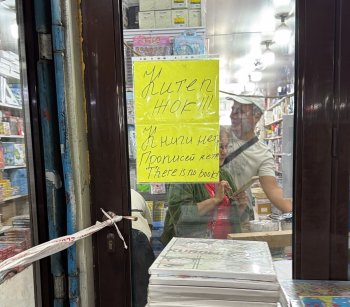 Китеп
жок!!!
Книги нет
Прописей нет
There is no book